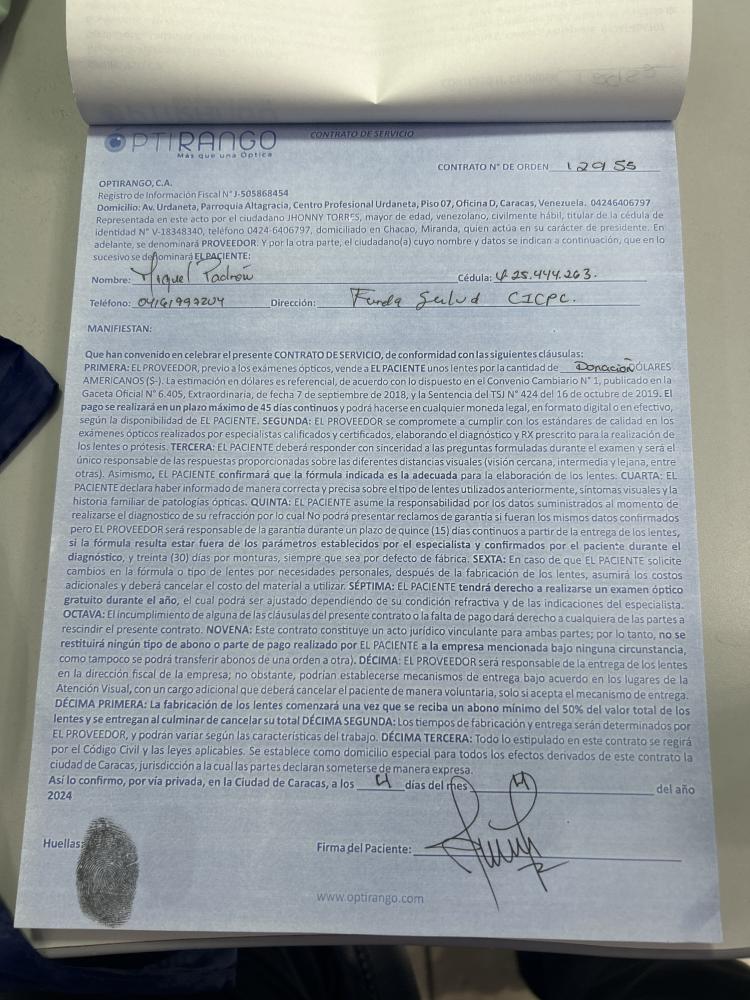 ÓPTIRANGO
Más que una Óptica
CONTRATO DE SERVICIO
CONTRATO N° DE ORDEN 12955
OPTIRANGO, C.A.
Registro de Información Fiscal N°J-505868454
Domicilio: Av. Urdaneta, Parroquia Altagracia, Centro Profesional Urdaneta, Piso 07, Oficina D, Caracas, Venezuela. 04246406797
Representada en este acto por el ciudadano JHONNY TORRES, mayor de edad, venezolano, civilmente hábil, titular de la cédula de
identidad N° V-18348340, teléfono 0424-6406797, domiciliado en Chacao, Miranda, quien actúa en su carácter de presidente. En
adelante, se denominará PROVEEDOR. Y por la otra parte, el ciudadano(a) cuyo nombre y datos se indican a continuación, que en lo
sucesivo se denominará EL PACIENTE:
Nombre: Miguel Padrón Cédula: V 25.444.263.
Teléfono: 04161997204 Dirección: Funda Salud CICPC.
MANIFIESTAN:
Que han convenido en celebrar el presente CONTRATO DE SERVICIO, de conformidad con las siguientes cláusulas:
PRIMERA: EL PROVEEDOR, previo a los exámenes ópticos, vende a EL PACIENTE unos lentes por la cantidad de Donación DÓLARES
AMERICANOS ($-). La estimación en dólares es referencial, de acuerdo con lo dispuesto en el Convenio Cambiario N° 1, publicado en la
Gaceta Oficial N° 6.405, Extraordinaria, de fecha 7 de septiembre de 2018, y la Sentencia del TSJ N° 424 del 16 de octubre de 2019. El
pago se realizará en un plazo máximo de 45 días continuos y podrá hacerse en cualquier moneda legal, en formato digital o en efectivo,
según la disponibilidad de EL PACIENTE. SEGUNDA: EL PROVEEDOR se compromete a cumplir con los estándares de calidad en los
exámenes ópticos realizados por especialistas calificados y certificados, elaborando el diagnóstico y RX prescrito para la realización de
los lentes o prótesis. TERCERA: EL PACIENTE deberá responder con sinceridad a las preguntas formuladas durante el examen y será el
único responsable de las respuestas proporcionadas sobre las diferentes distancias visuales (visión cercana, intermedia y lejana, entre
otras). Asimismo, EL PACIENTE confirmará que la fórmula indicada es la adecuada para la elaboración de los lentes. CUARTA: EL
PACIENTE declara haber informado de manera correcta y precisa sobre el tipo de lentes utilizados anteriormente, síntomas visuales y la
historia familiar de patologías ópticas. QUINTA: EL PACIENTE asume la responsabilidad por los datos suministrados al momento de
realizarse el diagnostico de su refracción por lo cual No podrá presentar reclamos de garantía si fueran los mismos datos confirmados
pero EL PROVEEDOR será responsable de la garantía durante un plazo de quince (15) días continuos a partir de la entrega de los lentes,
si la fórmula resulta estar fuera de los parámetros establecidos por el especialista y confirmados por el paciente durante el
diagnóstico, y treinta (30) días por monturas, siempre que sea por defecto de fábrica. SEXTA: En caso de que EL PACIENTE solicite
cambios en la fórmula o tipo de lentes por necesidades personales, después de la fabricación de los lentes, asumirá los costos
adicionales y deberá cancelar el costo del material a utilizar. SÉPTIMA: EL PACIENTE tendrá derecho a realizarse un examen óptico
gratuito durante el año, el cual podrá ser ajustado dependiendo de su condición refractiva y de las indicaciones del especialista.
OCTAVA: El incumplimiento de alguna de las cláusulas del presente contrato o la falta de pago dará derecho a cualquiera de las partes a
rescindir el presente contrato. NOVENA: Este contrato constituye un acto jurídico vinculante para ambas partes; por lo tanto, no se
restituirá ningún tipo de abono o parte de pago realizado por EL PACIENTE a la empresa mencionada bajo ninguna circunstancia,
como tampoco se podrá transferir abonos de una orden a otra). DÉCIMA: EL PROVEEDOR será responsable de la entrega de los lentes
en la dirección fiscal de la empresa; no obstante, podrían establecerse mecanismos de entrega bajo acuerdo en los lugares de la
Atención Visual, con un cargo adicional que deberá cancelar el paciente de manera voluntaria, solo si acepta el mecanismo de entrega.
DÉCIMA PRIMERA: La fabricación de los lentes comenzará una vez que se reciba un abono mínimo del 50% del valor total de los
lentes y se entregan al culminar de cancelar su total DÉCIMA SEGUNDA: Los tiempos de fabricación y entrega serán determinados por
EL PROVEEDOR, y podrán variar según las características del trabajo. DÉCIMA TERCERA: Todo lo estipulado en este contrato se regirá
por el Código Civil y las leyes aplicables. Se establece como domicilio especial para todos los efectos derivados de este contrato la
ciudad de Caracas, jurisdicción a la cual las partes declaran someterse de manera expresa.
Así lo confirmo, por vía privada, en la Ciudad de Caracas, a los 4 días del mes 4 del año
2024
Huellas:
Firma del Paciente:
www.optirango.com